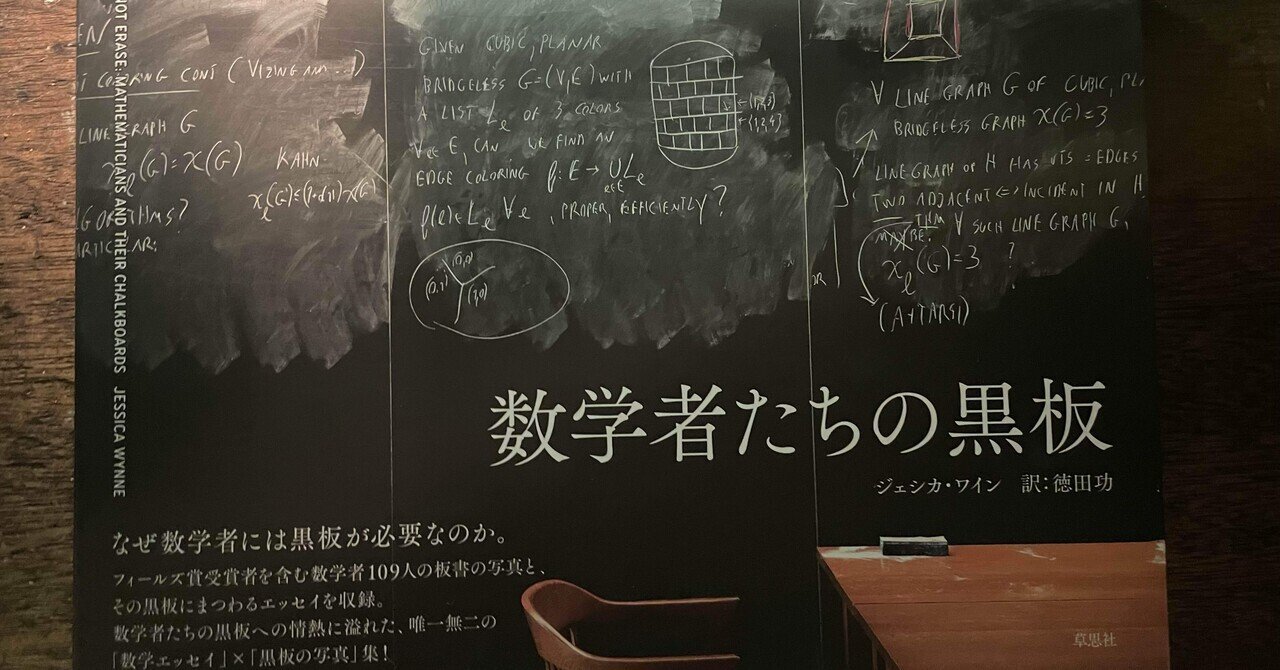 NOT ERASE: MATHEMATICIANS AND THEIR CHALKBOARDS JESSICA WYNNE
EN
T COLORING CONT (VIZING AND ...)
LINE GRAPH G
χₗ(G)=χ(G)
KAHN
χₗ(G)≤(1+o(1))χ(G)
GORITHMS?
ARTICULAR:
GIVEN CUBIC, PLANAR
BRIDGELESS G=(V,E) WITH
A LIST Lₑ OF 3 COLORS
∀e∈E, CAN WE FIND AN
EDGE COLORING f: E → ∪Lₑ
e∈E
f(e)∈Lₑ ∀e, PROPER, EFFICIENTLY?
←{1,2,3}
←{1,2,4}
(0,0)
(0,1)
(1,0)
∀ LINE GRAPH G OF CUBIC, PL
BRIDGELESS GRAPH χ(G)=3
LINE GRAPH OF H HAS VTS = EDGES
TWO ADJACENT ⇔ INCIDENT IN H
THM
MAYBE: ∀ SUCH LINE GRAPH G,
χₗ(G)=3 ?
(A+TARSI)
数学者たちの黒板
ジェシカ・ワイン 訳:徳田功
なぜ数学者には黒板が必要なのか。
フィールズ賞受賞者を含む数学者109人の板書の写真と、
その黒板にまつわるエッセイを収録。
数学者たちの黒板への情熱に溢れた、唯一無二の
「数学エッセイ」×「黒板の写真」集!
草思社